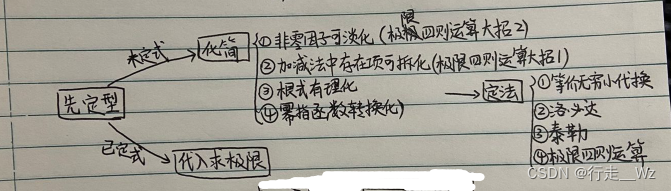 限
①非零因子可淡化(极限四则运算大招2)
未定式
化简
②加减法中存在项可拆化(极限四则运算大招1)
③根式有理化
④幂指函数转换化)
先定型
定法
①等价无穷小代换
②洛必达
③泰勒
④极限四则运算
已定式
代入求极限
CSDN @行走__Wz